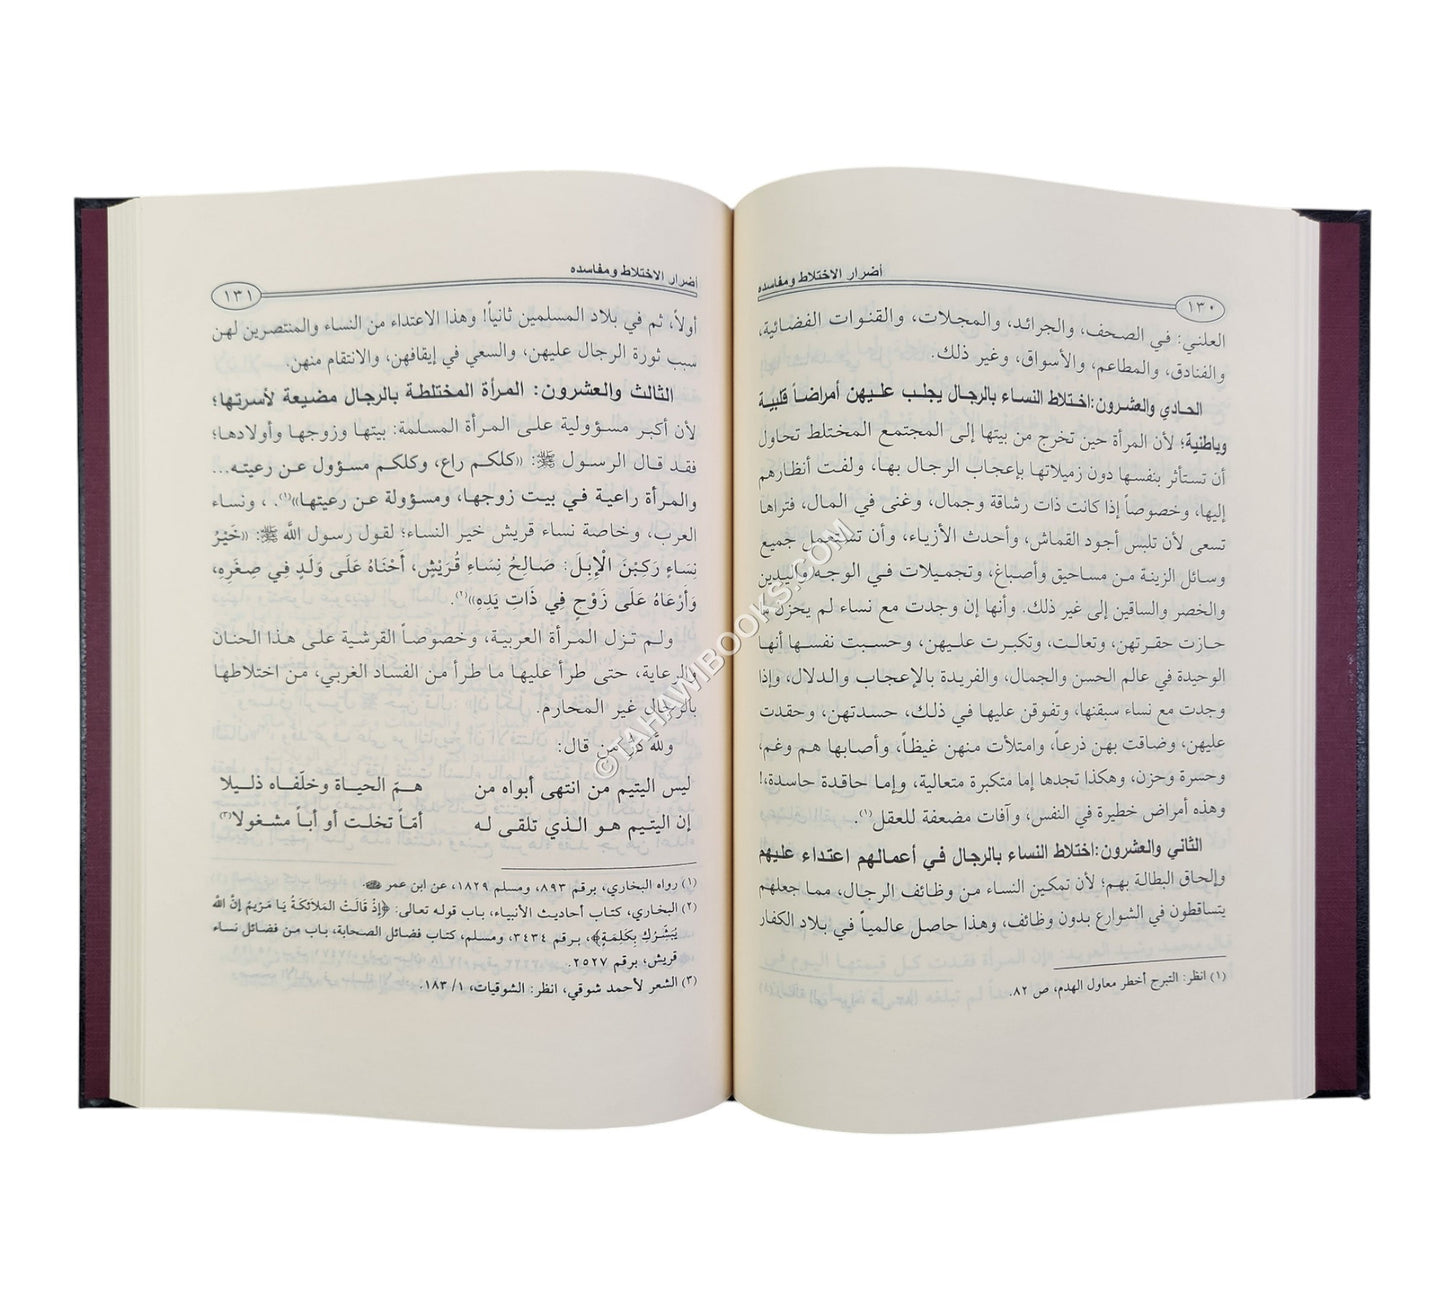 أضرار الاختلاط ومفاسده
١٣٠
العلني: في الصحف، والجرائد، والمجلات، والقنوات الفضائية،
والفنادق، والمطاعم، والأسواق، وغير ذلك.
الحادي والعشرون: اختلاط النساء بالرجال يجلب عليهن أمراضاً قلبية
وباطنية؛ لأن المرأة حين تخرج من بيتها إلى المجتمع المختلط تحاول
أن تستأثر بنفسها دون زميلاتها بإعجاب الرجال بها، ولفت أنظارهم
إليها، وخصوصاً إذا كانت ذات رشاقة وجمال، وغنى في المال، فتراها
تسعى لأن تلبس أجود القماش، وأحدث الأزياء، وأن تستعمل جميع
وسائل الزينة من مساحيق وأصباغ، وتجميلات في الوجه واليدين
والخصر والساقين إلى غير ذلك. وأنها إن وجدت مع نساء لم يحزن ما
حازت حقرتهن، وتعالت، وتكبرت عليهن، وحسبت نفسها أنها
الوحيدة في عالم الحسن والجمال، والفريدة بالإعجاب والدلال، وإذا
وجدت مع نساء سبقنها، وتفوقن عليها في ذلك، حسدتهن، وحقدت
عليهن، وضاقت بهن ذرعاً، وامتلأت منهن غيظاً، وأصابها هم وغم،
وحسرة وحزن، وهكذا تجدها إما متكبرة متعالية، وإما حاقدة حاسدة،!
وهذه أمراض خطيرة في النفس، وآفات مضعفة للعقل(١).
الثاني والعشرون: اختلاط النساء بالرجال في أعمالهم اعتداء عليهم
وإلحاق البطالة بهم؛ لأن تمكين النساء من وظائف الرجال، مما جعلهم
يتساقطون في الشوارع بدون وظائف، وهذا حاصل عالمياً في بلاد الكفار
(١) انظر: التبرج أخطر معاول الهدم، ص ٨٢.
أضرار الاختلاط ومفاسده
١٣١
أولاً، ثم في بلاد المسلمين ثانياً! وهذا الاعتداء من النساء والمنتصرين لهن
سبب ثورة الرجال عليهن، والسعي في إيقافهن، والانتقام منهن.
الثالث والعشرون: المرأة المختلطة بالرجال مضيعة لأسرتها؛
لأن أكبر مسؤولية على المرأة المسلمة: بيتها وزوجها وأولادها؛
فقد قال الرسول ﷺ: «كلكم راع، وكلكم مسؤول عن رعيته...
والمرأة راعية في بيت زوجها، ومسؤولة عن رعيتها»(١). ، ونساء
العرب، وخاصة نساء قريش خير النساء؛ لقول رسول الله ﷺ: «خَيْرُ
نِسَاءٍ رَكِبْنَ الْإِبِلَ: صَالِحُ نِسَاءِ قُرَيْشٍ، أَحْنَاهُ عَلَى وَلَدٍ فِي صِغَرِهِ،
وَأَرْعَاهُ عَلَى زَوْجٍ فِي ذَاتِ يَدِهِ»(٢).
ولم تزل المرأة العربية، وخصوصاً القرشية على هذا الحنان
والرعاية، حتى طرأ عليها ما طرأ من الفساد الغربي، من اختلاطها
بالرجال غير المحارم.
ولله درّ من قال:
ليس اليتيم من انتهى أبواه من    همّ الحياة وخلّفاه ذليلا
إن اليتيم هو الذي تلقى له    أمّاً تخلت أو أباً مشغولا(٣)
(١) رواه البخاري، برقم ٨٩٣، ومسلم ١٨٢٩، عن ابن عمر.
(٢) البخاري، كتاب أحاديث الأنبياء، باب قوله تعالى: ﴿إِذْ قَالَتْ الْمَلَائِكَةُ يَا مَرْيَمُ إِنَّ اللَّهَ
يُبَشِّرُكِ بِكَلِمَةٍ﴾، برقم ٣٤٣٤، ومسلم، كتاب فضائل الصحابة، باب من فضائل نساء
قريش، برقم ٢٥٢٧.
(٣) الشعر لأحمد شوقي، انظر: الشوقيات، ١/ ١٨٣.
©TAHAWIBOOKS.COM